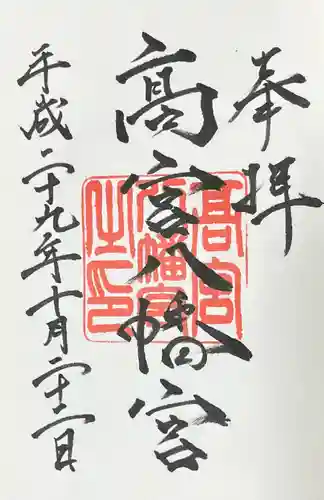 奉拝
高宮八幡宮
平成二十九年十月二十二日
高宮
八幡宮
之印